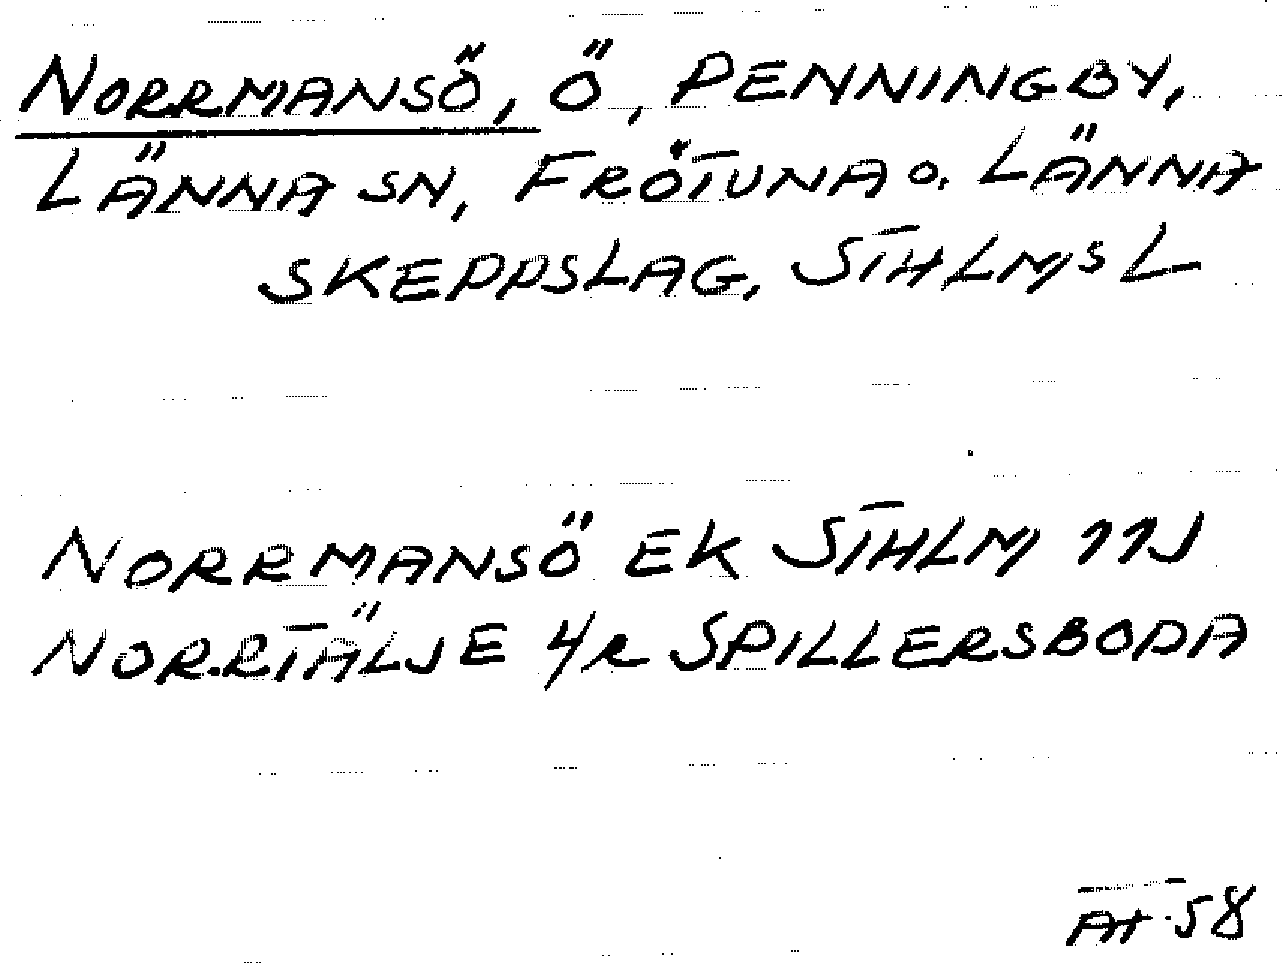 NORRMANSÖ, Ö, PENNINGBY,
LÄNNA SN, FRÖTUNA O. LÄNNA
SKEPPSLAG, STHLMS L
NORRMANSÖ EK STHLM 11J
NORRTÄLJE 4/R SPILLERSBODA
AT 58